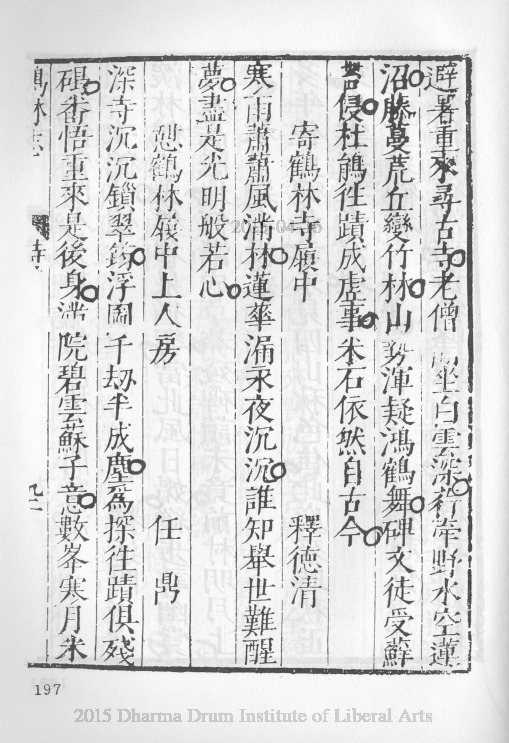 避暑重來尋古寺老僧坐白雲深荇牽野水空蓮
沼藤蔓荒丘變竹林山勢渾疑鴻鶴舞碑文徒受蘚
苔侵杜鵑往蹟成虛事米石依然自古今
寄鶴林寺履中　釋德清
寒雨蕭蕭風滿林蓮華漏永夜沉沉誰知舉世難醒
夢盡是光明般若心
憩鶴林履中上人房　任
深寺沉沉鎖翠筠浮圖千劫半成塵為探往蹟俱殘
碣香悟重來是後身滿院碧雲蘇子意數峯寒月米
鶴林寺 九十
197
2015 Dharma Drum Institute of Liberal Arts